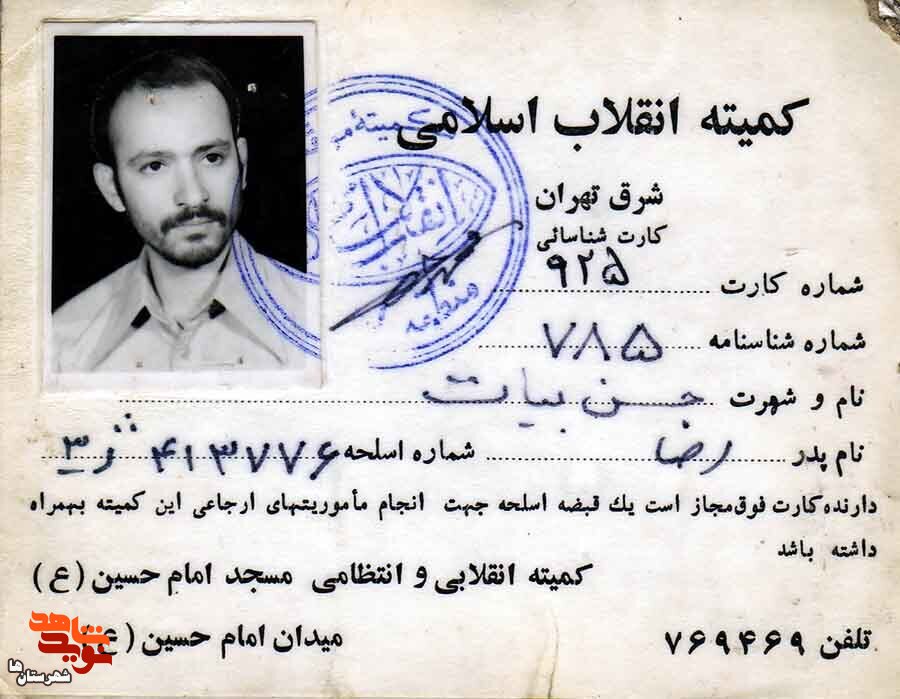 کمیته انقلاب اسلامی
شرق تهران
کارت شناسائی
شماره کارت ۹۲۵
شماره شناسنامه ۷۸۵
نام و شهرت حسن بیات
نام پدر رضا شماره اسلحه ۴۱۳۷۷۶ ژ۳
دارنده کارت فوق مجاز است یك قبضه اسلحه جهت انجام مأموریتهای ارجاعی این کمیته بهمراه
داشته باشد
کمیته انقلابی و انتظامی مسجد امام حسین (ع)
تلفن ۷۶۹۴۶۹ میدان امام حسین (ع)
نوید شاهد
شهرستان‌ها